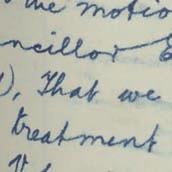 we motio
ncillor
), That we
treatment